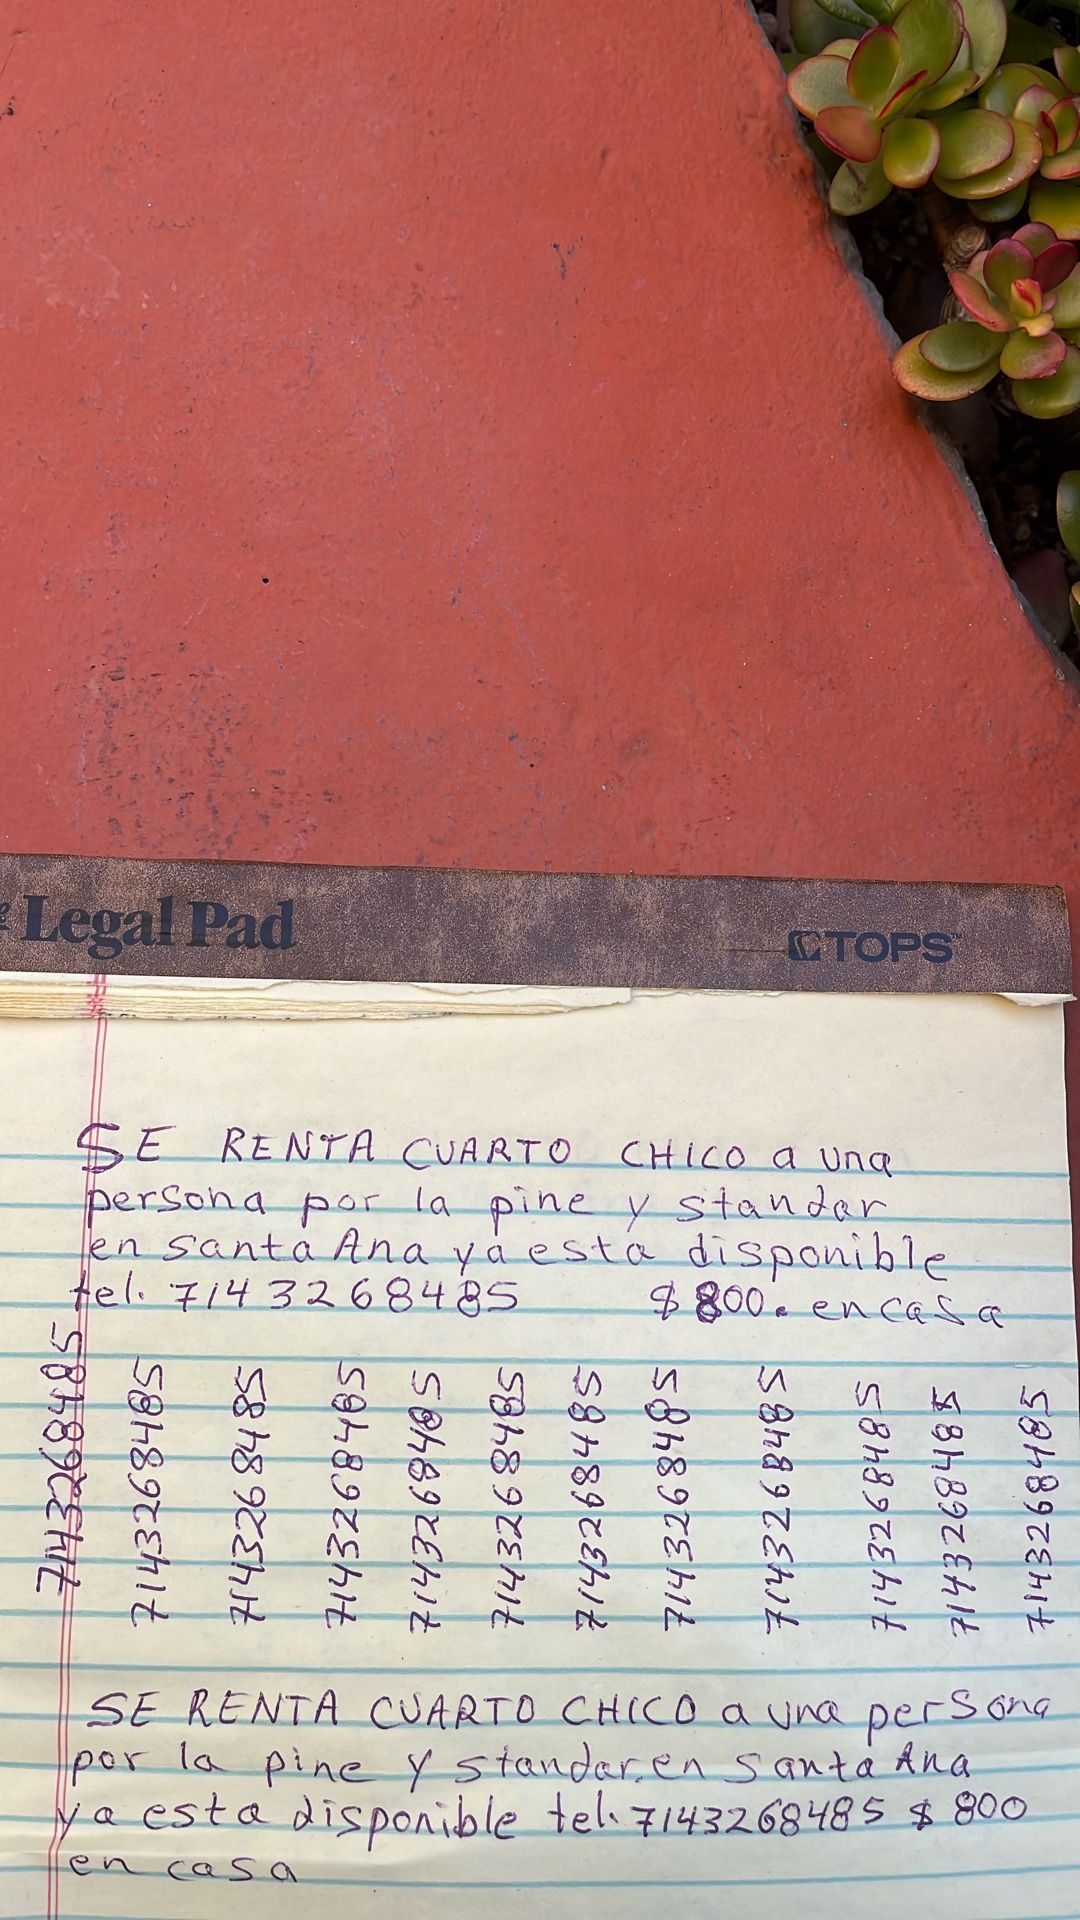 Legal Pad
TOPS™
SE RENTA CUARTO CHICO a una
persona por la pine y standar
en santa Ana ya esta disponible
tel. 7143268485 $800. en casa
7143268485
7143268485
7143268485
7143268485
7143268485
7143268485
7143268485
7143268485
7143268485
7143268485
7143268485
7143268485
SE RENTA CUARTO CHICO a una persona
por la pine y standar. en santa Ana
ya esta disponible tel. 7143268485 $800
en casa